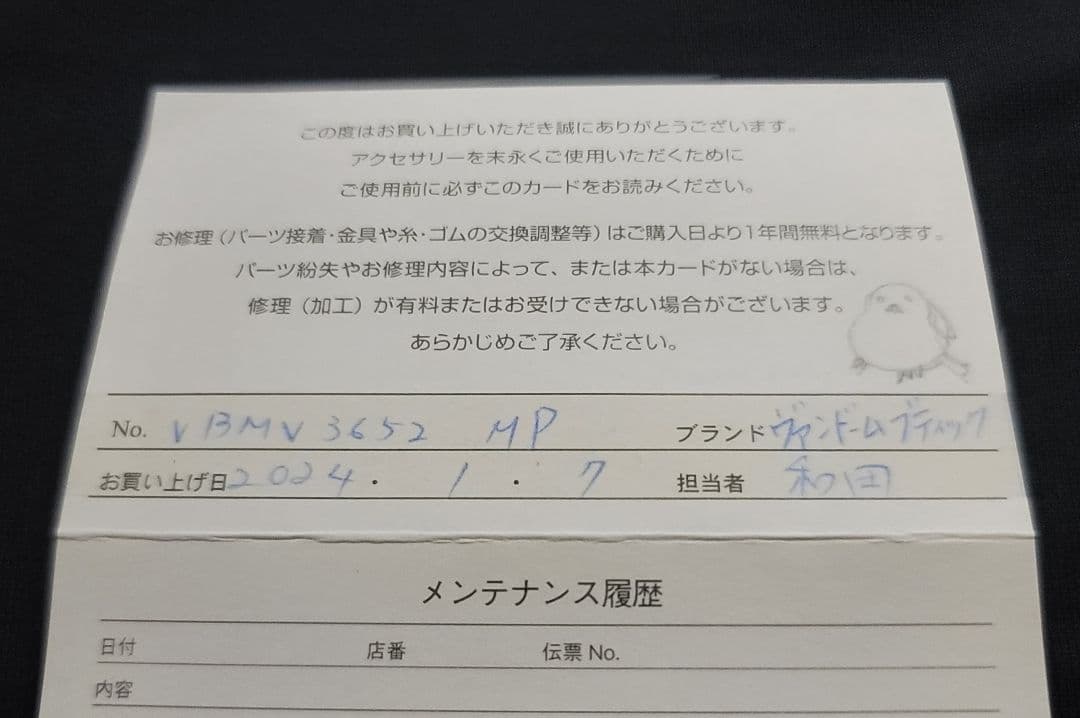 この度はお買い上げいただき誠にありがとうございます。
アクセサリーを末永くご使用いただくために
ご使用前に必ずこのカードをお読みください。
お修理(パーツ接着･金具や糸･ゴムの交換調整等)はご購入日より1年間無料となります。
パーツ紛失やお修理内容によって、または本カードがない場合は、
修理(加工)が有料またはお受けできない場合がございます。
あらかじめご了承ください。
No. VBMV3652 MP ブランド ヴァンドームブティック
お買い上げ日 2024・1・7 担当者 和田
メンテナンス履歴
日付 店番 伝票 No.
内容